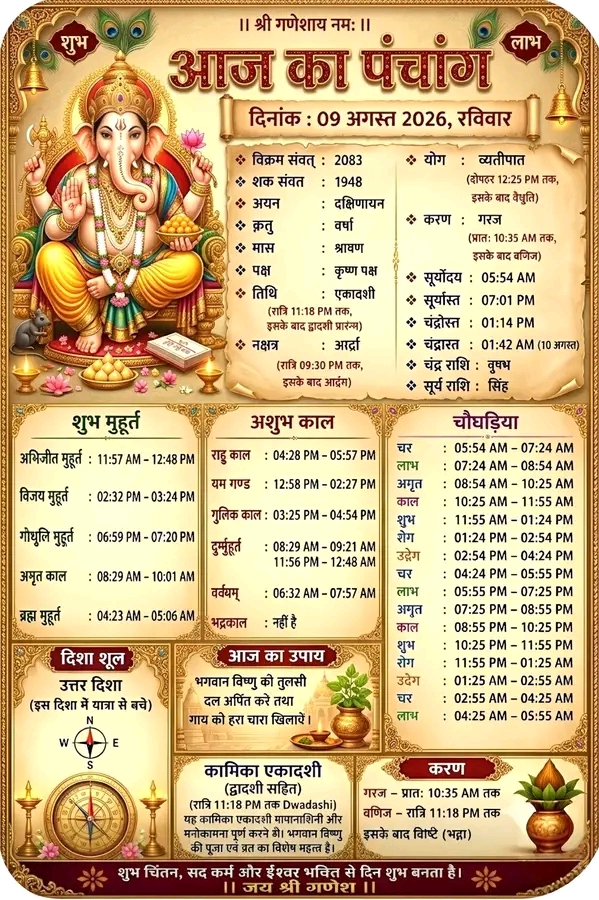 ।। श्री गणेशाय नमः ।।
शुभ
लाभ
आज का पंचांग
दिनांक : 09 अगस्त 2026, रविवार
❖ विक्रम संवत् : 2083
❖ शक संवत : 1948
❖ अयन : दक्षिणायन
❖ क्रतु : वर्षा
❖ मास : श्रावण
❖ पक्ष : कृष्ण पक्ष
❖ तिथि : एकादशी
(रात्रि 11:18 PM तक,
इसके बाद द्वादशी प्रारंम्भ)
❖ नक्षत्र : आर्द्रा
(रात्रि 09:30 PM तक,
इसके बाद आर्द्रम)
❖ योग : व्यतीपात
(दोपहर 12:25 PM तक,
इसके बाद वैधृति)
❖ करण : गरज
(प्रातः 10:35 AM तक,
इसके बाद वणिज)
❖ सूर्योदय : 05:54 AM
❖ सूर्यास्त : 07:01 PM
❖ चंद्रोस्त : 01:14 PM
❖ चंद्रास्त : 01:42 AM (10 अगस्त)
❖ चंद्र राशि : वृषभ
❖ सूर्य राशि : सिंह
शुभ मुहूर्त
अभिजीत मुहूर्त : 11:57 AM – 12:48 PM
विजय मुहूर्त : 02:32 PM – 03:24 PM
गोधूलि मुहूर्त : 06:59 PM – 07:20 PM
अमृत काल : 08:29 AM – 10:01 AM
ब्रह्म मुहूर्त : 04:23 AM – 05:06 AM
अशुभ काल
राहु काल : 04:28 PM – 05:57 PM
यम गण्ड : 12:58 PM – 02:27 PM
गुलिक काल : 03:25 PM – 04:54 PM
दुर्मुहूर्त : 08:29 AM – 09:21 AM
11:56 PM – 12:48 AM
वर्वयम् : 06:32 AM – 07:57 AM
भद्रकाल : नहीं है
चौघड़िया
चर : 05:54 AM – 07:24 AM
लाभ : 07:24 AM – 08:54 AM
अमृत : 08:54 AM – 10:25 AM
काल : 10:25 AM – 11:55 AM
शुभ : 11:55 AM – 01:24 PM
रोग : 01:24 PM – 02:54 PM
उद्वेग : 02:54 PM – 04:24 PM
चर : 04:24 PM – 05:55 PM
लाभ : 05:55 PM – 07:25 PM
अमृत : 07:25 PM – 08:55 PM
काल : 08:55 PM – 10:25 PM
शुभ : 10:25 PM – 11:55 PM
रोग : 11:55 PM – 01:25 AM
उदेग : 01:25 AM – 02:55 AM
चर : 02:55 AM – 04:25 AM
लाभ : 04:25 AM – 05:55 AM
दिशा शूल
उत्तर दिशा
(इस दिशा में यात्रा से बचे)
N
W E
S
आज का उपाय
भगवान विष्णु को तुलसी
दल अर्पित करे तथा
गाय को हरा चारा खिलावें ।
कामिका एकादशी
(द्वादशी सहित)
(रात्रि 11:18 PM तक Dwadashi)
यह कामिका एकादशी मापानाशिनी और
मनोकामना पूर्ण करने है। भगवान विष्णु
की पूजा एवं व्रत का विशेष महत्त्व है।
करण
गरज – प्रातः 10:35 AM तक
वणिज – रात्रि 11:18 PM तक
इसके बाद विष्टि (भद्रा)
शुभ चिंतन, सद कर्म और ईश्वर भक्ति से दिन शुभ बनता है।
।। जय श्री गणेश ।।